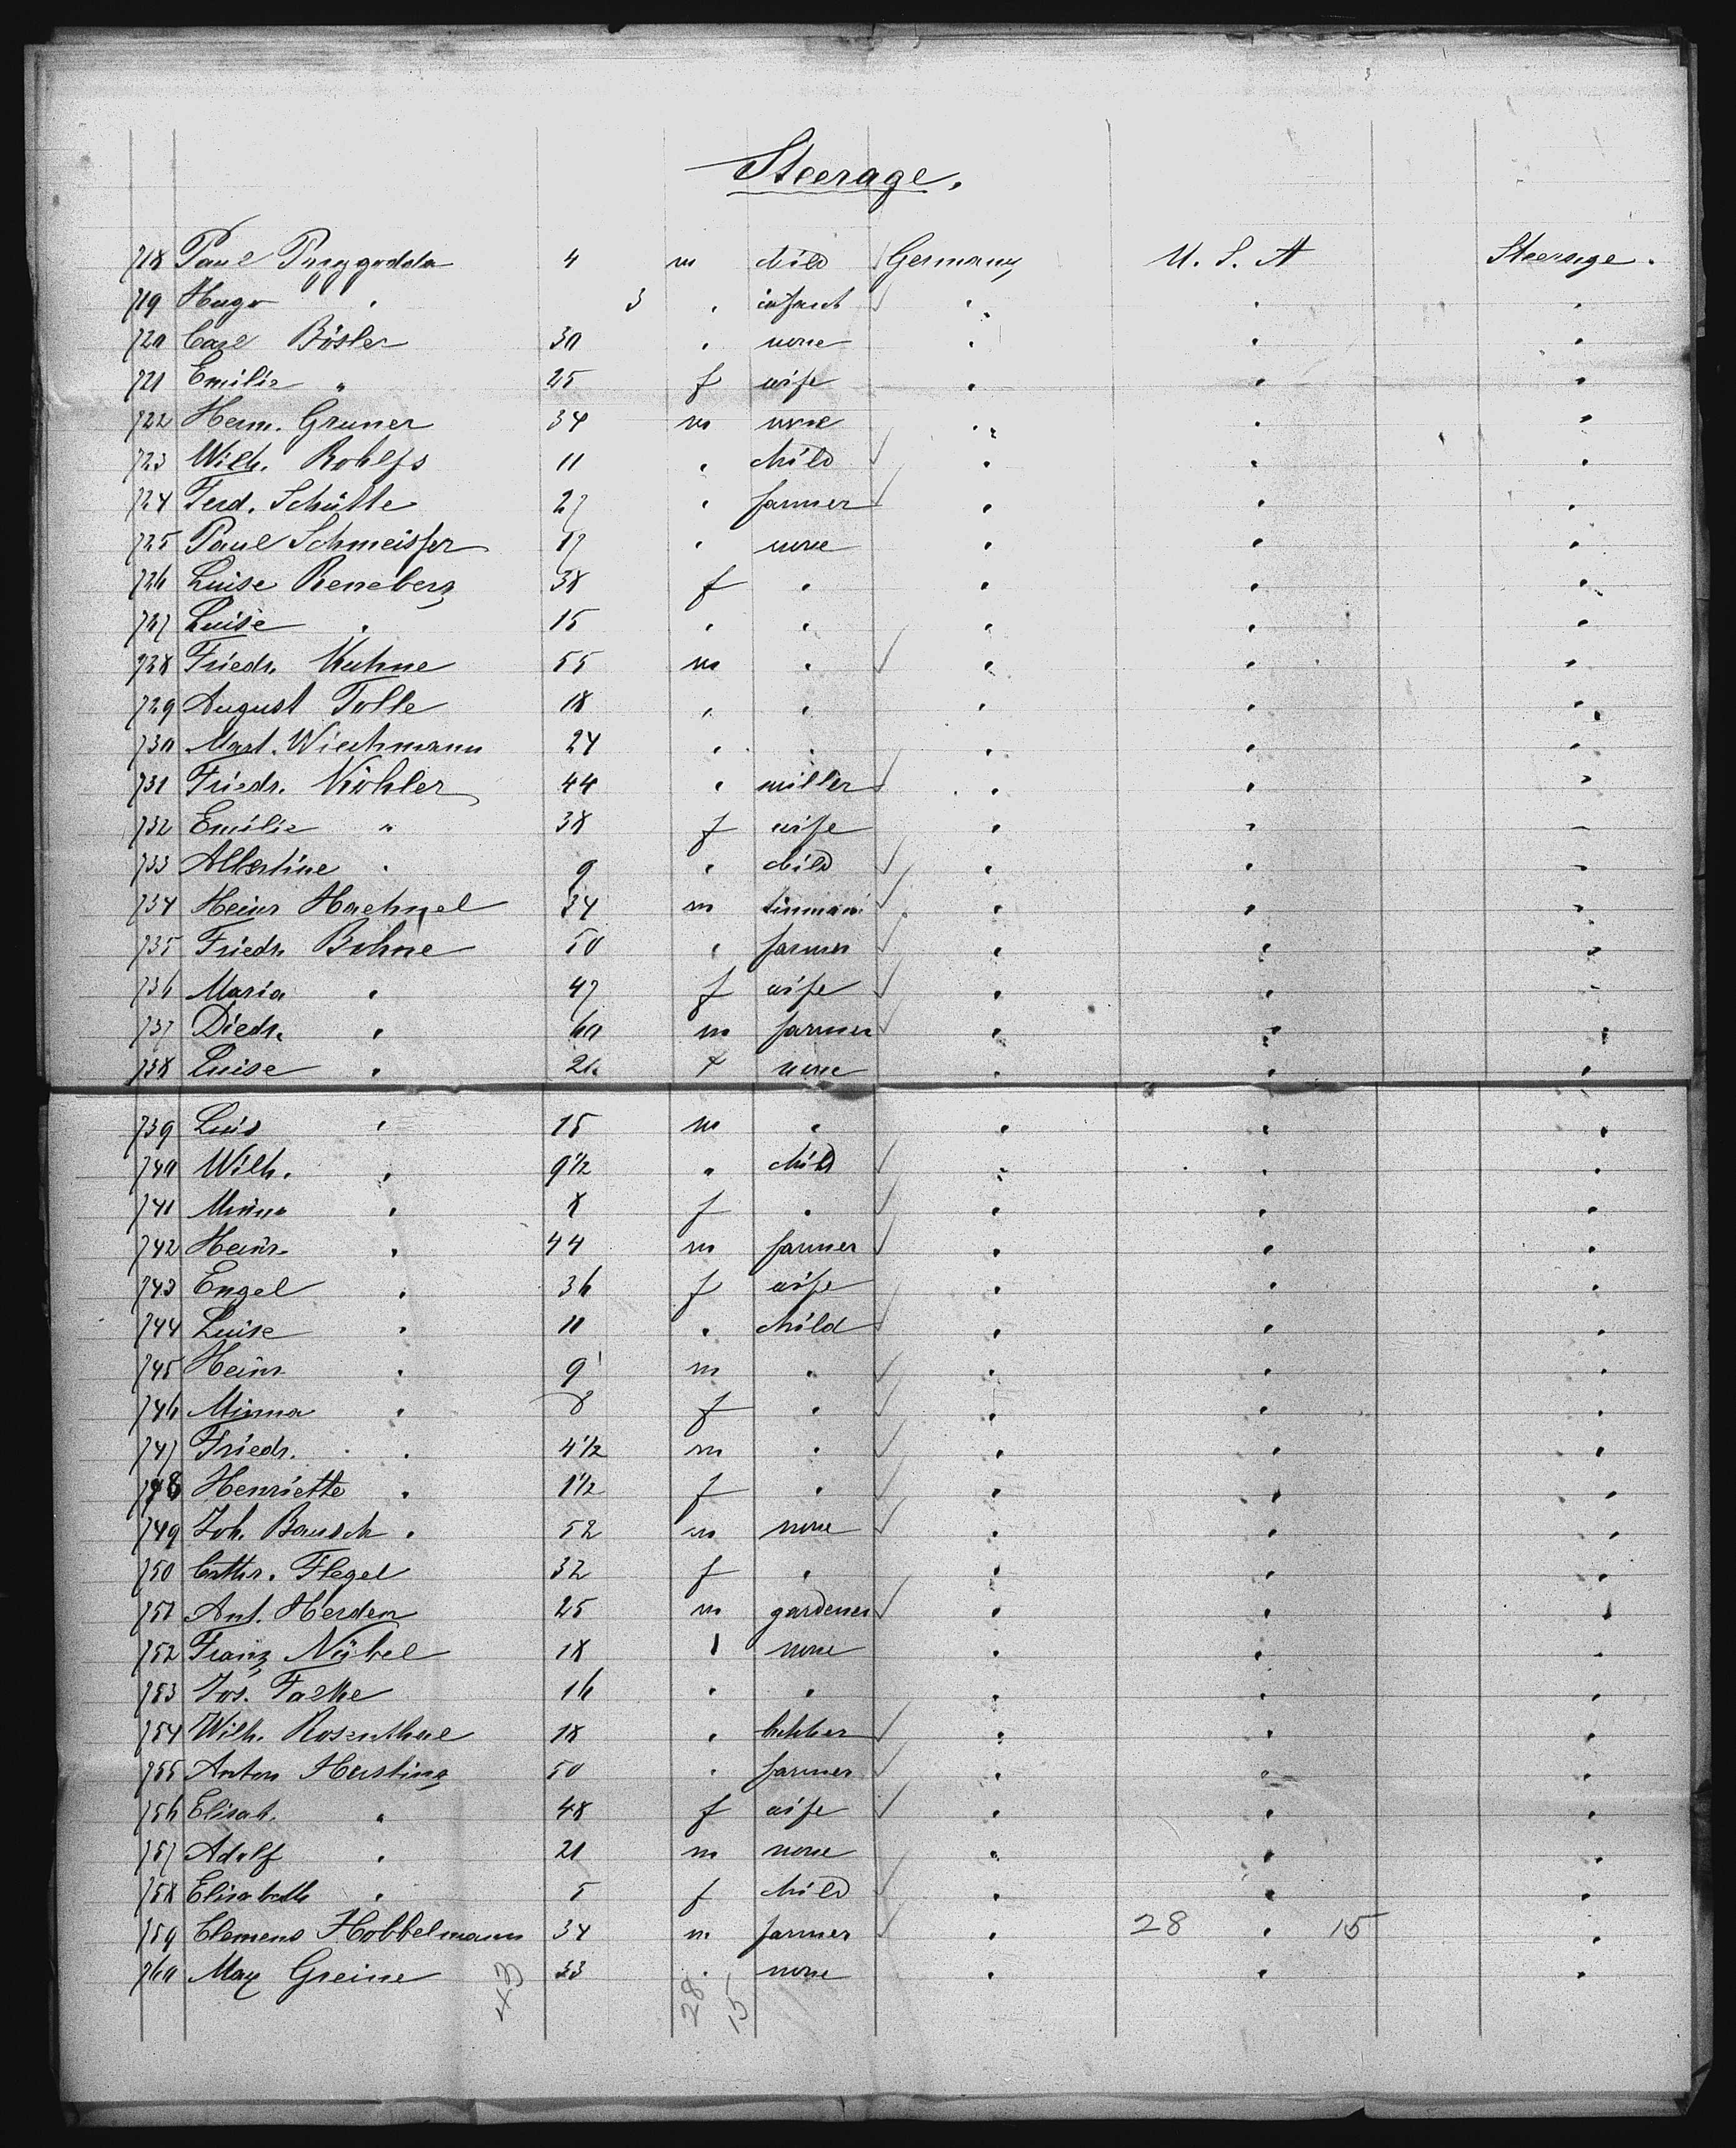 Steerage.
718 Paul Pryzgodda 4 m child Germany U. S. A Steerage.
719 Hugo " 3 " infant " " "
720 Carl Bösler 30 " none " " "
721 Emilie " 25 f wife " " "
722 Herm. Gruner 34 m none " " "
723 Wilh. Rohlfs 11 " child " " "
724 Ferd. Schütte 27 " farmer " " "
725 Paul Schmeisser 17 " none " " "
726 Luise Reneberg 38 f " " " "
727 Luise " 15 " " " " "
728 Friedr. Kuhne 55 m " " " "
729 August Tolle 18 " " " " "
730 Mart. Wiechmann 24 " " " " "
731 Friedr. Köhler 44 " miller " " "
732 Emilie " 38 f wife " " "
733 Albertine " 9 " child " " "
734 Heinr Haehnel 34 m " " "
735 Friedr Bohne 50 " farmer " " "
736 Maria " 47 f wife " " "
737 Diedr. " 60 m farmer " " "
738 Luise " 26 f none " " "
739 Luis " 15 m " " " "
740 Wilh. " 9 1/2 " child " " "
741 Minna " 8 f " " " "
742 Heinr. " 44 m farmer " " "
743 Engel " 36 f wife " " "
744 Luise " 11 " child " " "
745 Heinr " 9 m " " " "
746 Minna " 8 f " " " "
747 Friedr. " 4 1/2 m " " " "
748 Henriette " 1 1/2 f " " " "
749 Joh. Bausch 52 m none " " "
750 Cathr. Flegel 32 f " " " "
751 Ant. Herden 25 m gardener " " "
752 Franz Nübel 18 " none " " "
753 Jos. Falke 16 " " " " "
754 Wilh. Rosenthal 18 " " " "
755 Anton Hersting 50 " farmer " " "
756 Elisab. " 48 f wife " " "
757 Adolf " 21 m none " " "
758 Elisabeth " 5 f child " " "
759 Clemens Hobbelmann 34 m farmer " 28 " 15 "
760 Max Greine 33 " none " " "
43 28 15